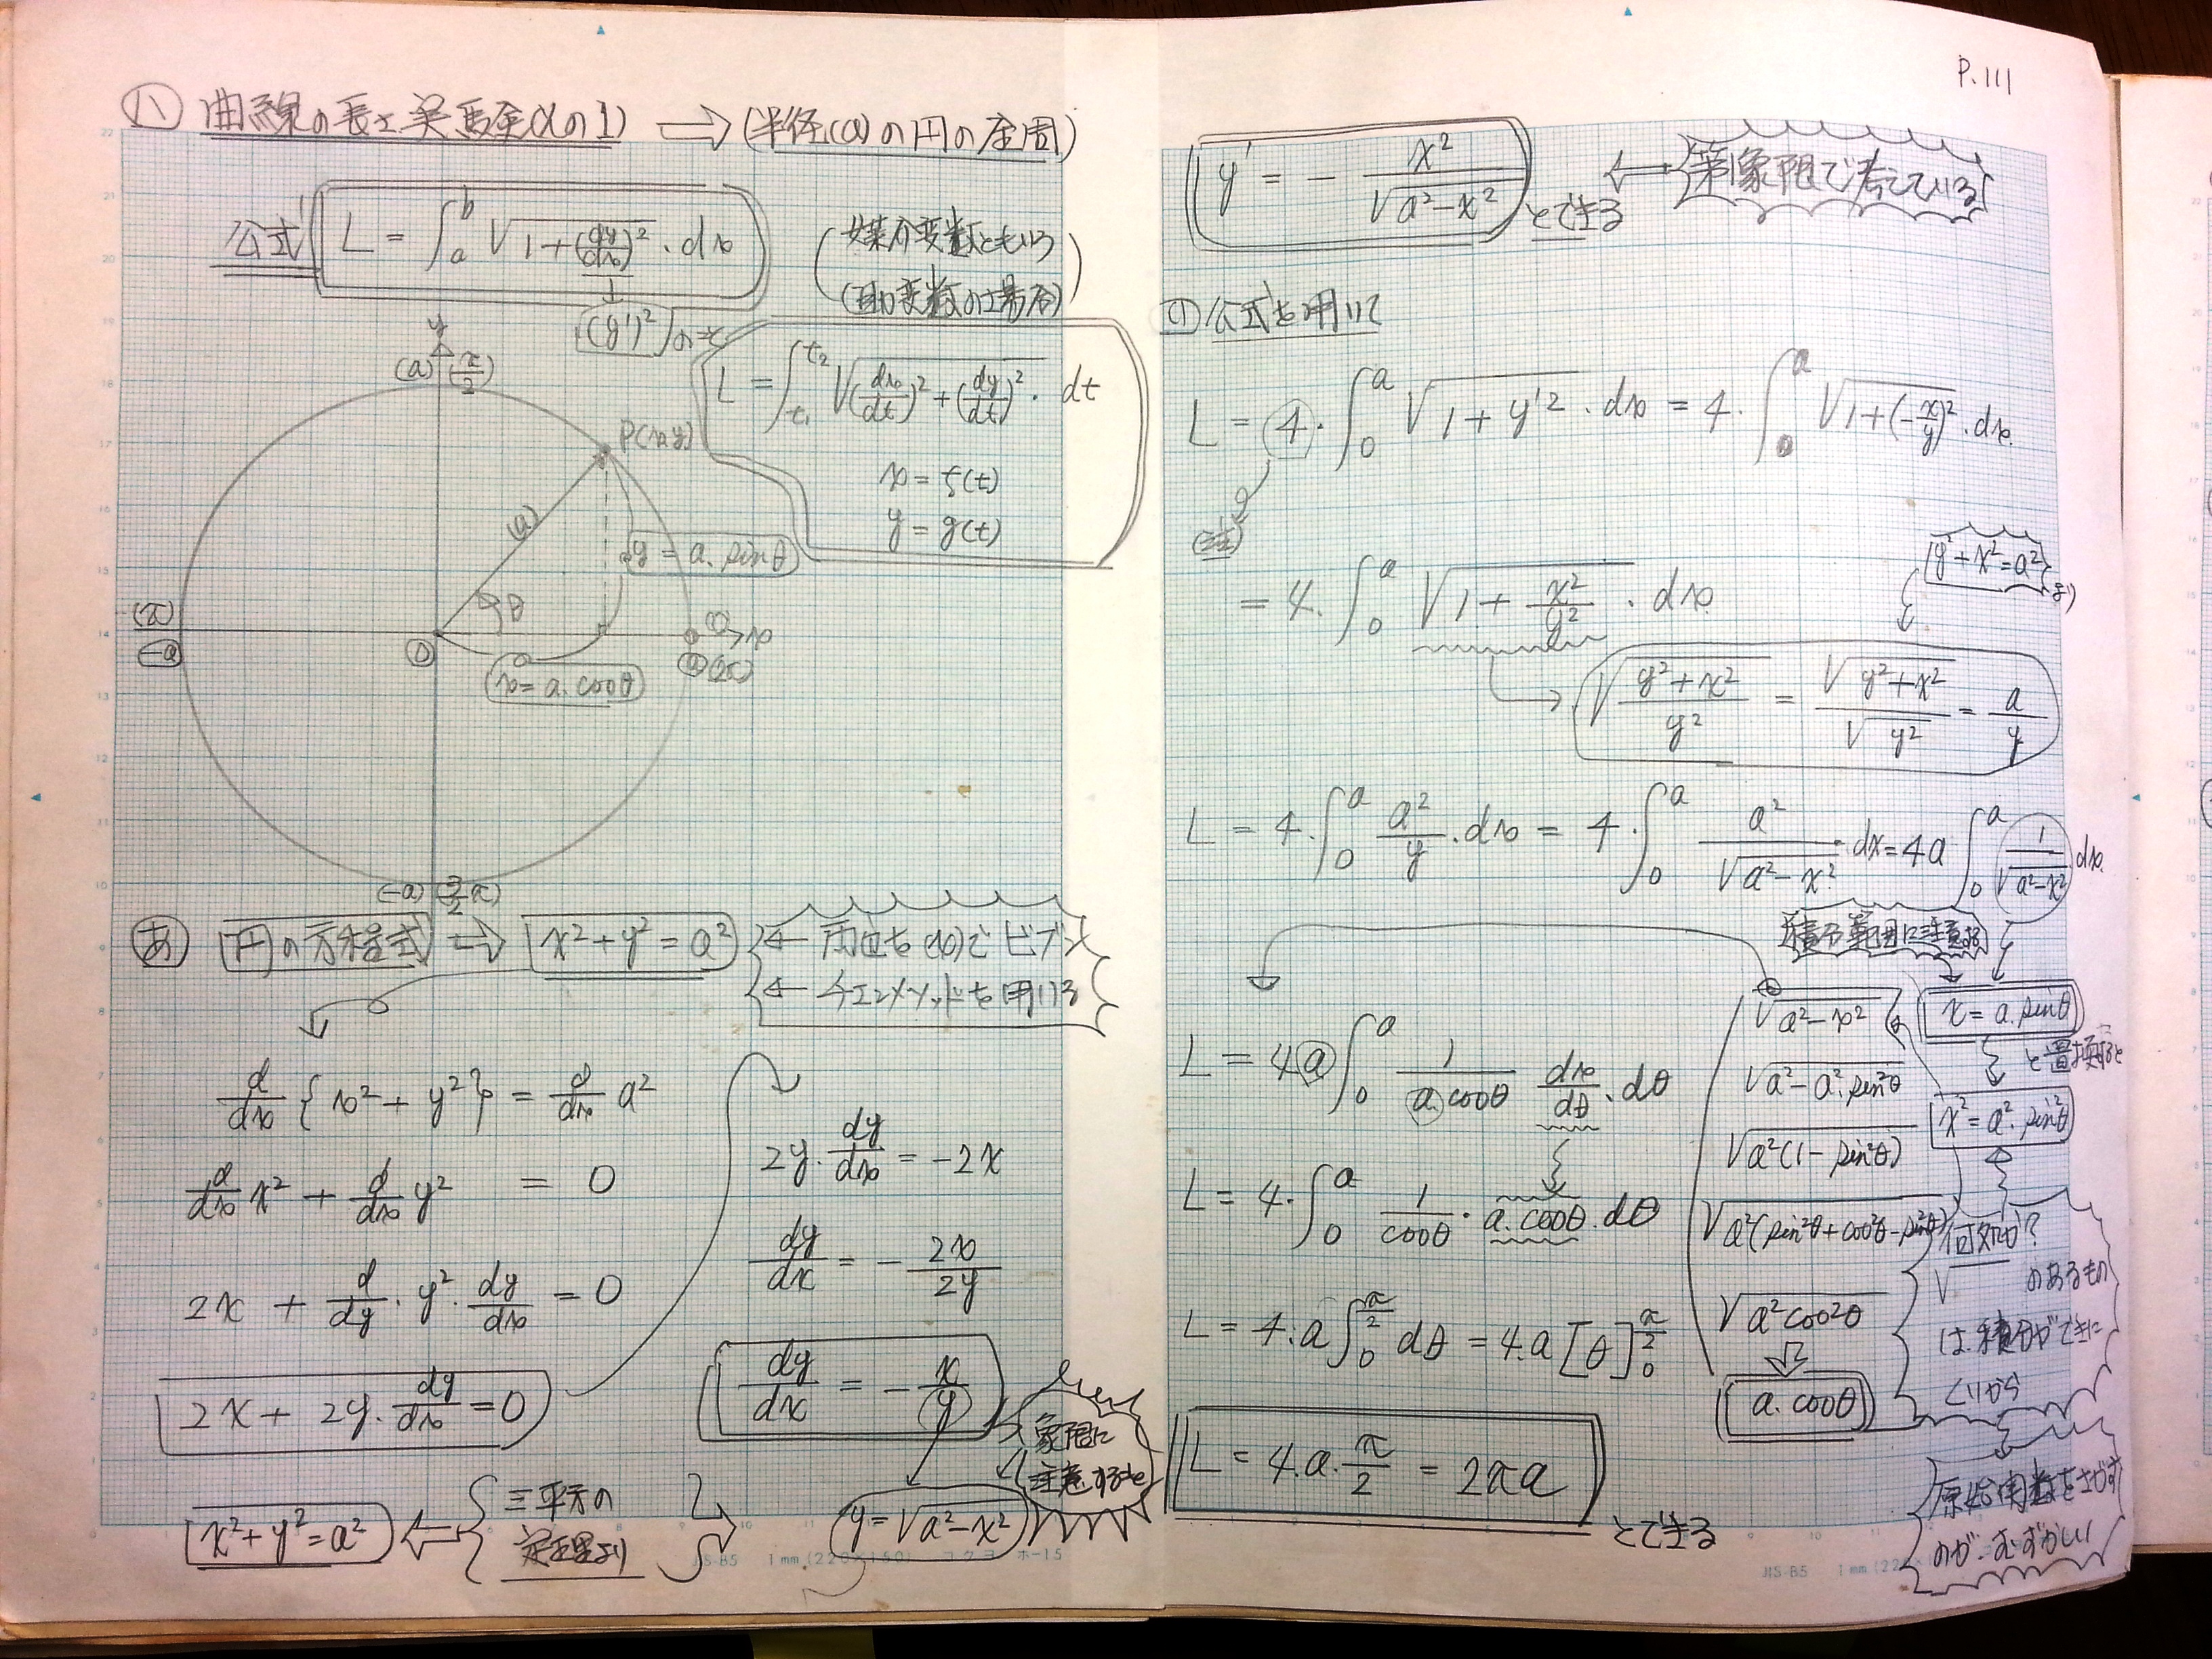 (八) 曲線の長さ実馬全(その1) ⇒ (半径(a)の円の全周)
公式 L = ∫_a^b √(1+(dy/dx)²)・dx
(y')²
(媒介変数ともいう)
L = ∫_{t1}^{t2} √((dx/dt)²+(dy/dt)²)・dt
x = f(t)
y = g(t)
y
(a) (π/2)
P(x,y)
(a)
y = a.sinθ
θ
(π)
(-a)
0
x
x = a.cosθ
(-a) (3/2 π)
(あ) 円の方程式 ⇒ x²+y²=a²
← 両辺を(x)でビブン
d/dx {x²+y²} = d/dx a²
d/dx x² + d/dx y² = 0
2x + d/dy・y²・dy/dx = 0
2x + 2y・dy/dx = 0
2y・dy/dx = -2x
dy/dx = - 2x/2y
dy/dx = - x/y
象限に
注意すると
x²+y²=a² ⇐ 三平方の
定理より
y=√(a²-x²)
JIS-B5 1mm(220×150) コクヨ ホ-15
P.111
y' = - x²/√(a²-x²) とできる
⇐ 第1象限で考えている
(い) 公式を用いて
L = 4・∫_0^a √(1+y'²)・dx = 4・∫_0^a √(1+(-x/y)²)・dx
(注)
= 4・∫_0^a √(1+x²/y²)・dx
y²+x²=a² より
√((y²+x²)/y²) = √(y²+x²)/√(y²) = a/y
L = 4・∫_0^a a²/y・dx = 4・∫_0^a a²/√(a²-x²) dx = 4a ∫_0^a 1/√(a²-x²) dx
積分範囲に注意する
x = a.sinθ
と置換すると
x² = a².sin²θ
√(a²-x²)
√(a²-a².sin²θ)
√(a²(1-sin²θ))
√(a²(sin²θ+cos²θ-sin²θ))
√(a²cos²θ)
a.cosθ
L = 4a ∫_0^a 1/(a.cosθ) dx/dθ・dθ
L = 4・∫_0^a 1/cosθ・a.cosθ.dθ
L = 4.a ∫_0^{π/2} dθ = 4.a [θ]_0^{π/2}
L = 4.a.π/2 = 2πa
とできる
何故か?
√ のあるもの
は積分ができに
くいから
原始関数をさがす
のが むずかしい
JIS-B5 1mm(22